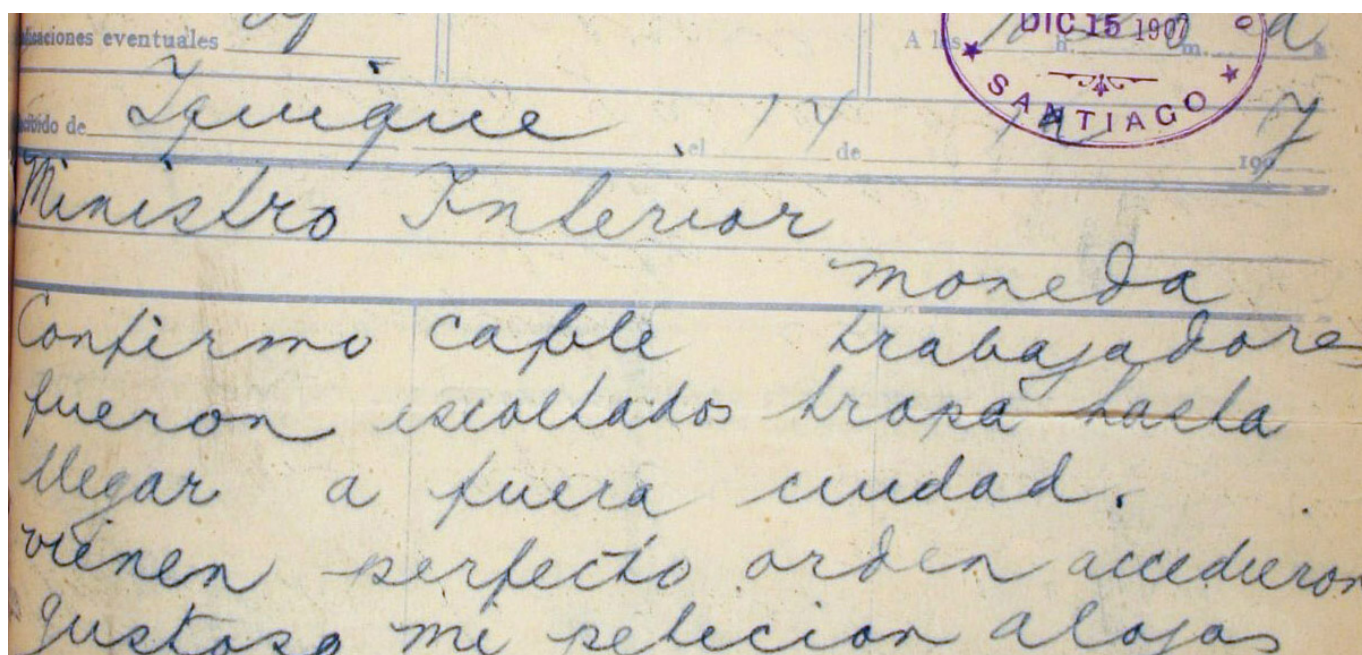 eventuales
A las h. m.
DIC 15 1907
SANTIAGO
de Iquique, el 14 de 1907
Ministro Interior
moneda
Confirmo cable trabajadores
fueron escoltados tropa hasta
llegar a fuera ciudad.
vienen perfecto orden accedieron
gustoso mi peticion alojar